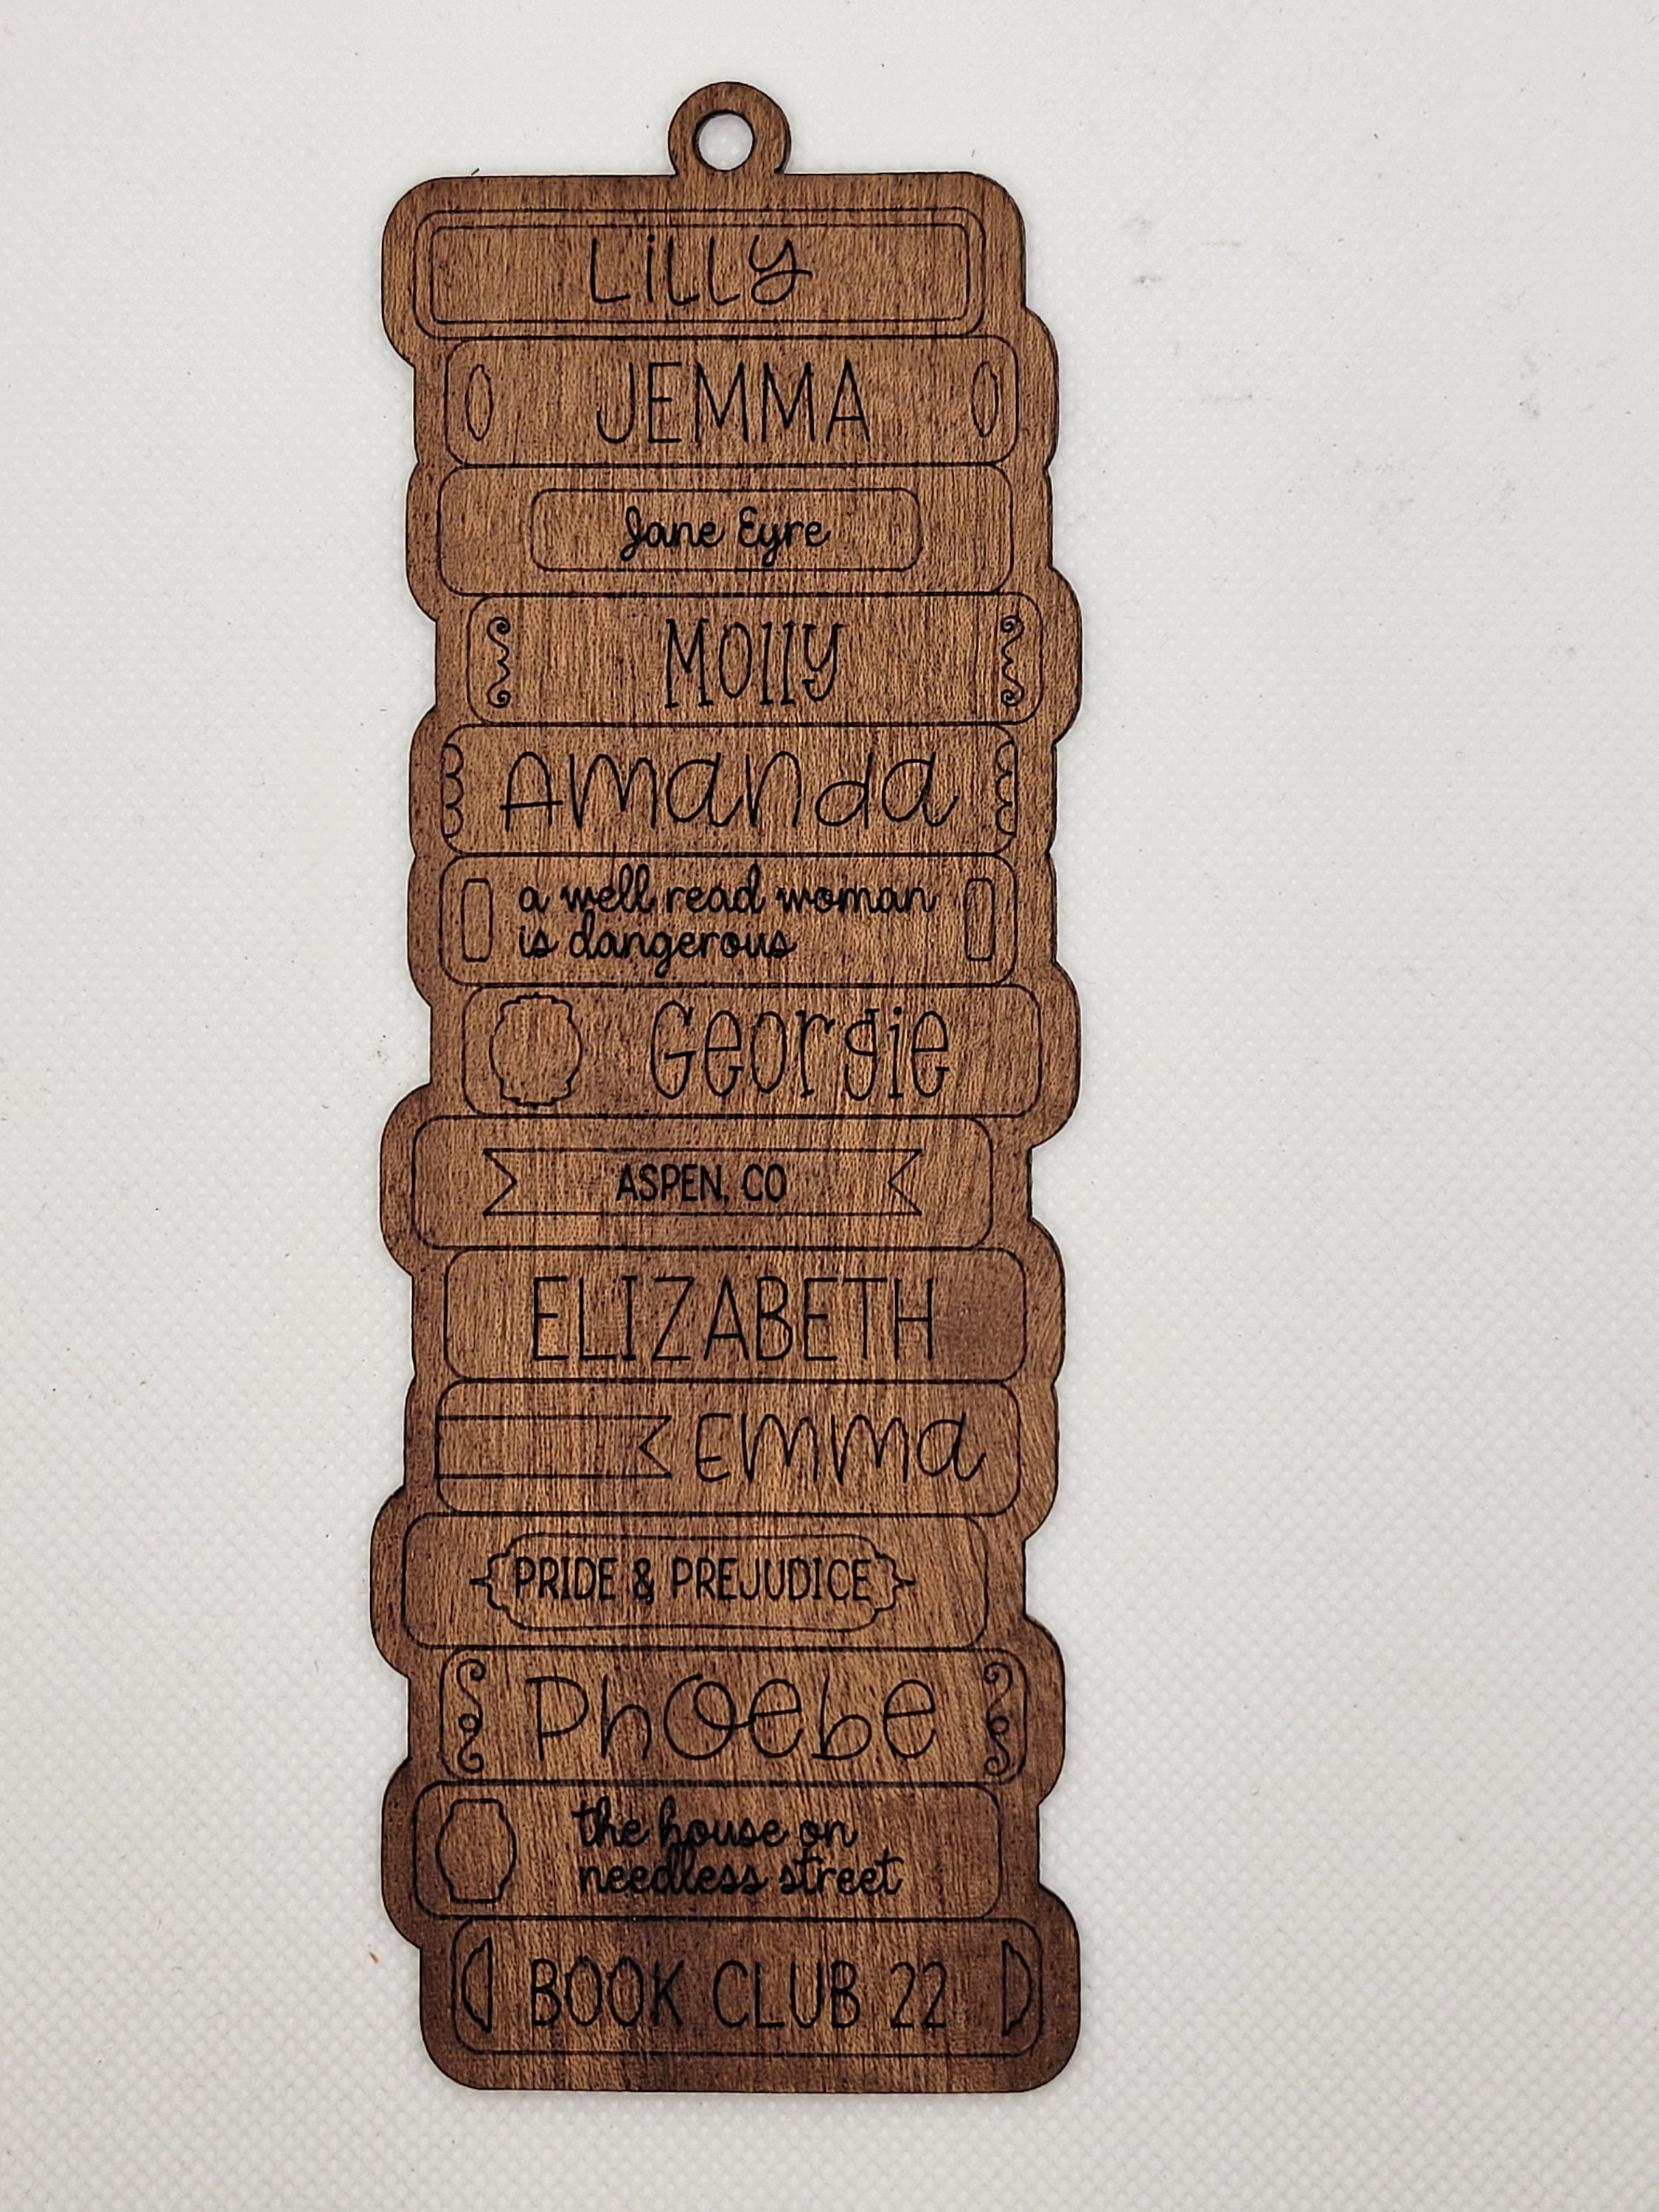 Lilly
JEMMA
Jane Eyre
Molly
Amanda
a well read woman
is dangerous
Georgie
ASPEN, CO
ELIZABETH
Emma
PRIDE & PREJUDICE
Phoebe
the house on
needless street
BOOK CLUB 22